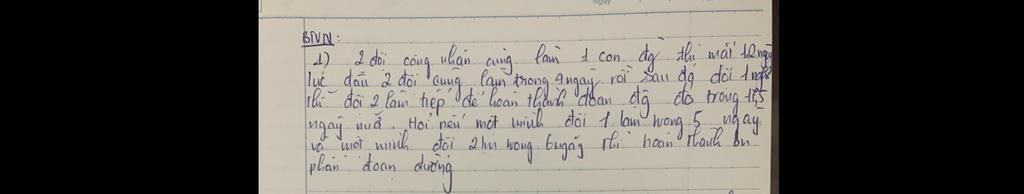 BTVN:
1) 2 đôi công nhân cùng làm 1 con đg thì mất 12 ngày
lúc đầu 2 đội cùng làm trong 9 ngày rồi sau đó đội 1 nghỉ
thì đội 2 làm tiếp để hoàn thành đoạn đg đó trong
ngày nữa. Hỏi nếu một mình đội 1 làm trong 5 ngày
và một mình đội 2 làm trong 6 ngày thì hoàn thành bn
phần đoạn đường